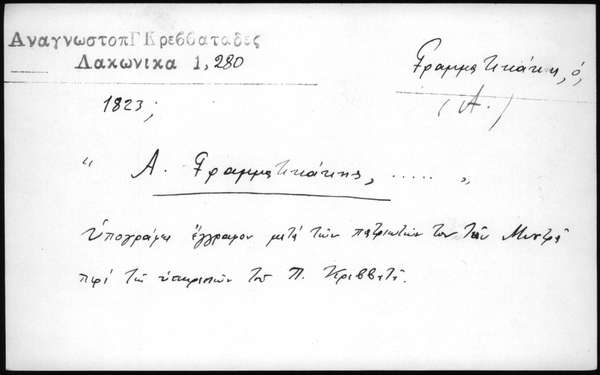 ΑναγνωστοπΓΚρεββαταδες
Λακωνικα 1,280
Γραμματικάκης, ὁ,
(Α.)
1823;
" Α. Γραμματικάκης, ..... "
Ὑπογράφει ἔγγραφον μετά τῶν πατριωτῶν του τῶν Μυστρᾶ
περί τῶν τοῦ Π. Κρεββατᾶ.